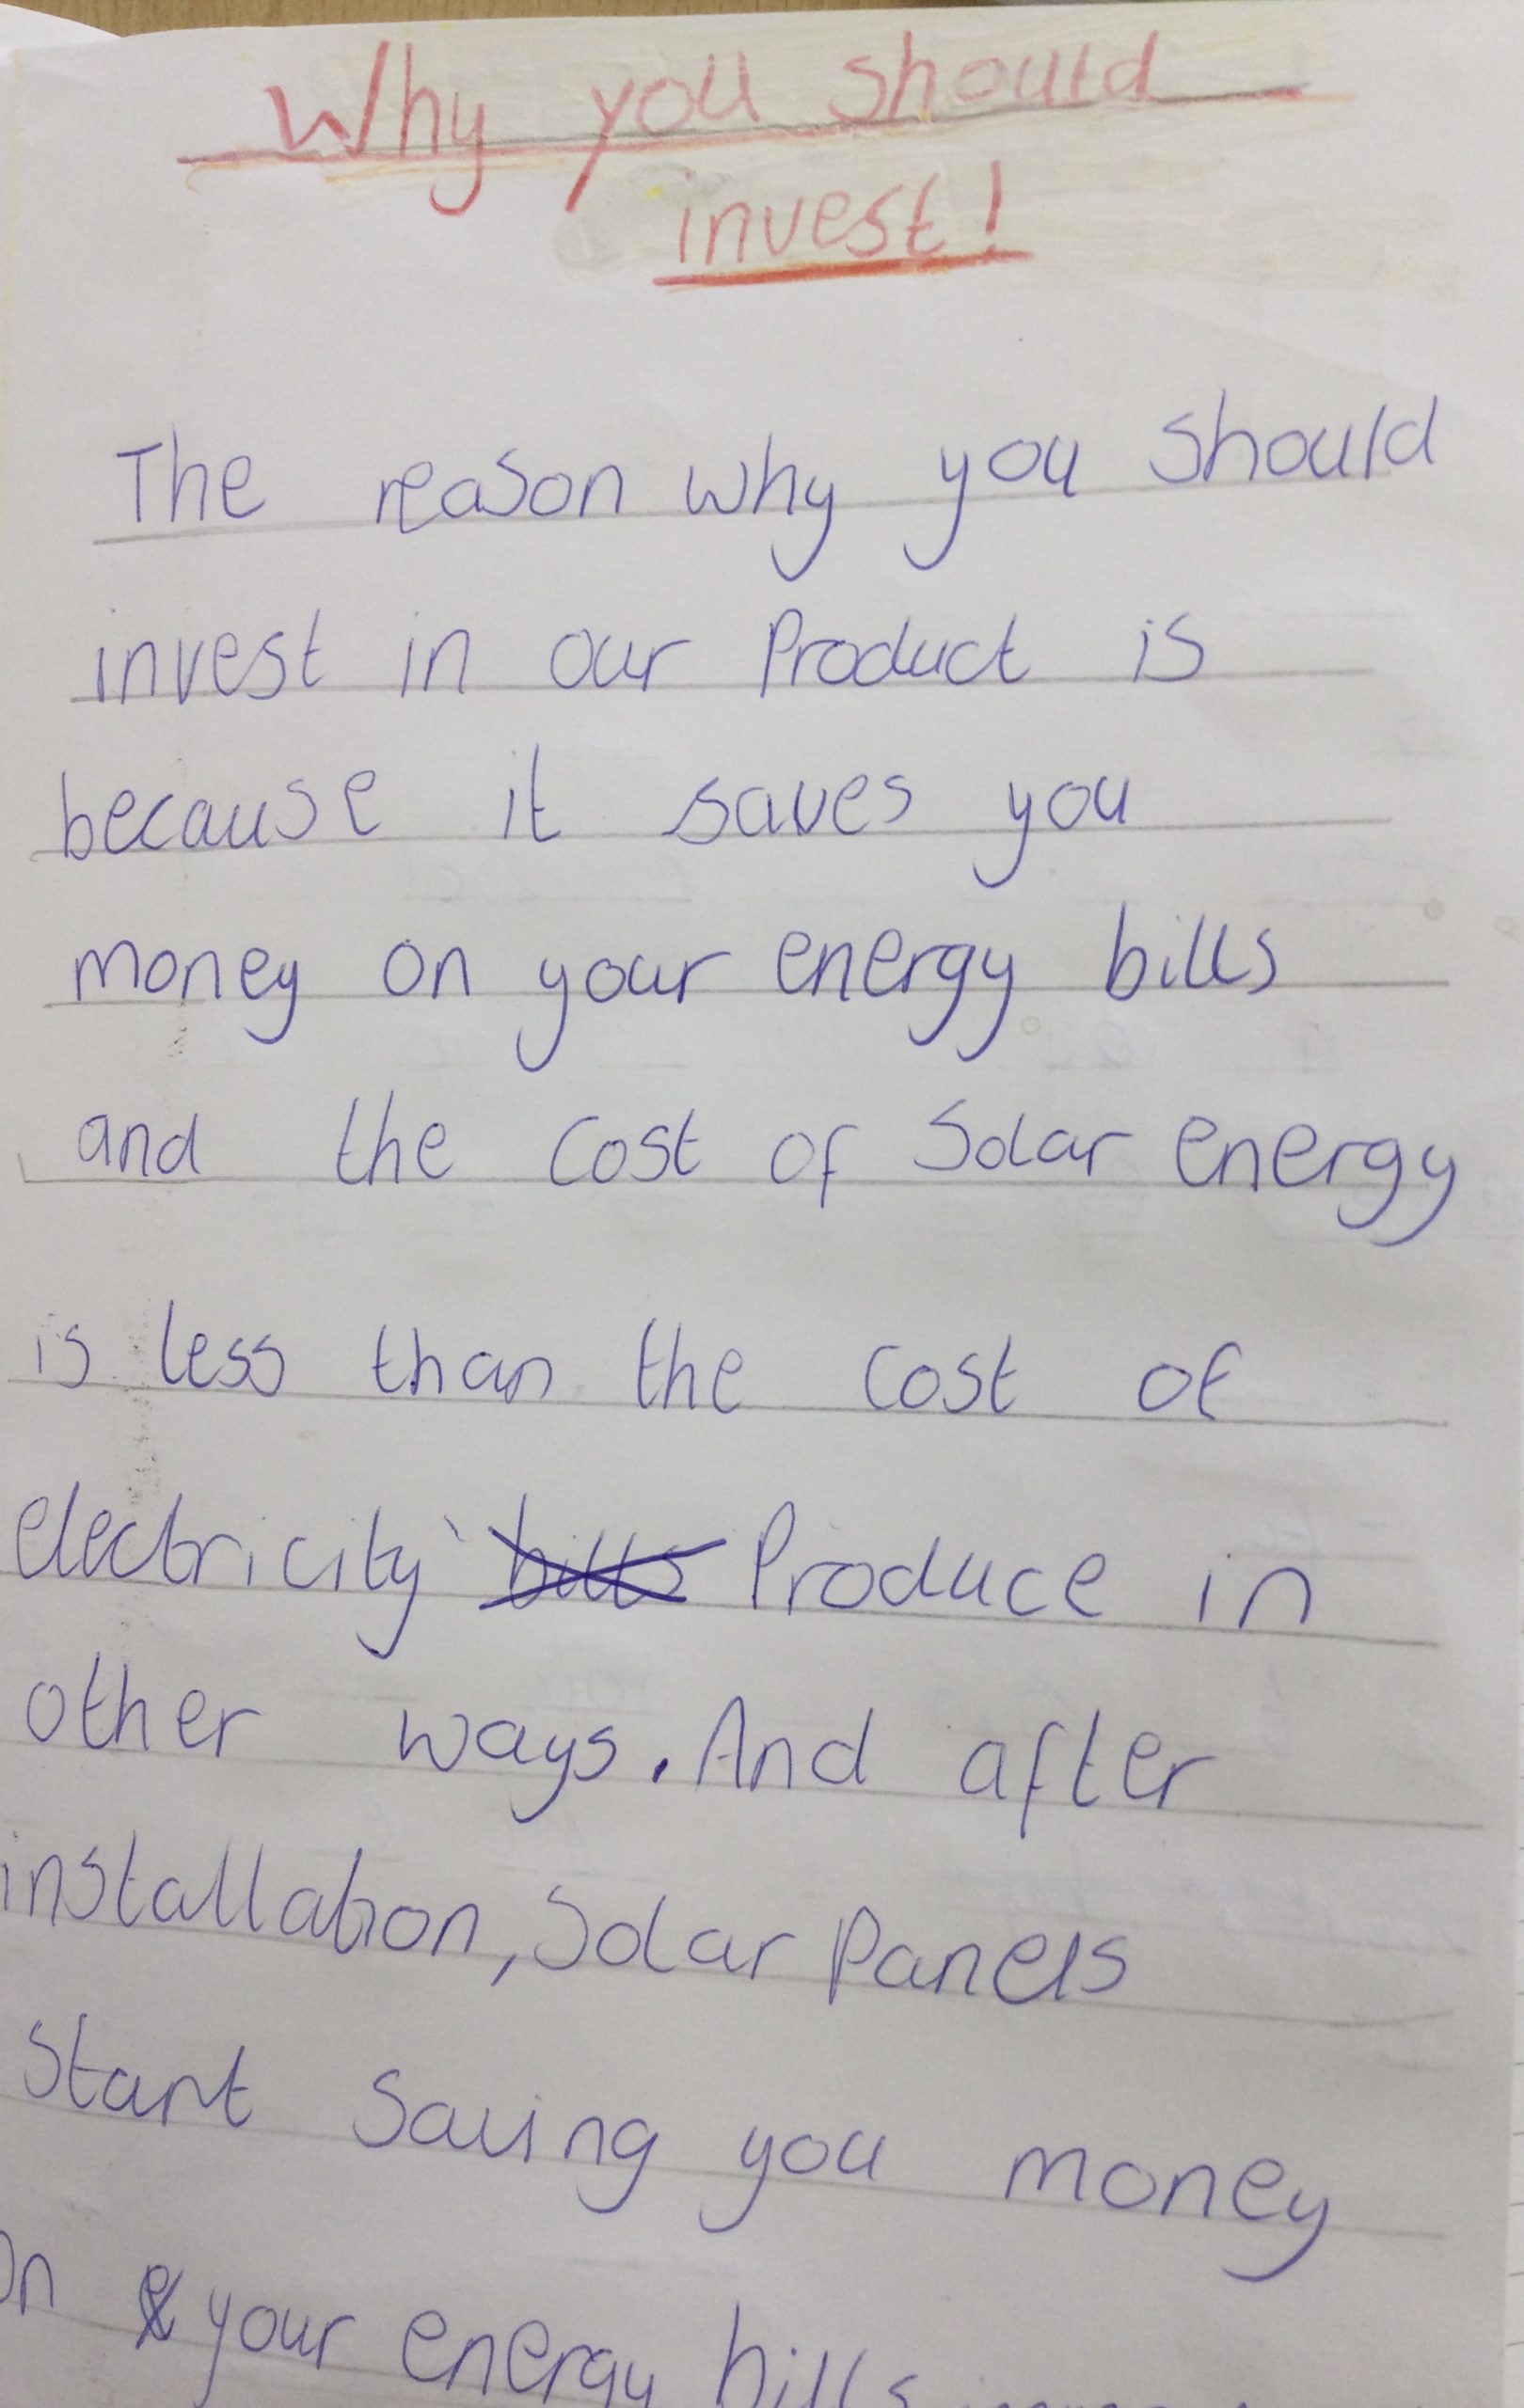 Why you should
invest!
The reason why you should
invest in our Product is
because it saves you
money on your energy bills
and the cost of Solar energy
is less than the cost of
electricity bills Produce in
other ways. And after
installation, Solar Panels
start Saving you money
On your energy bills